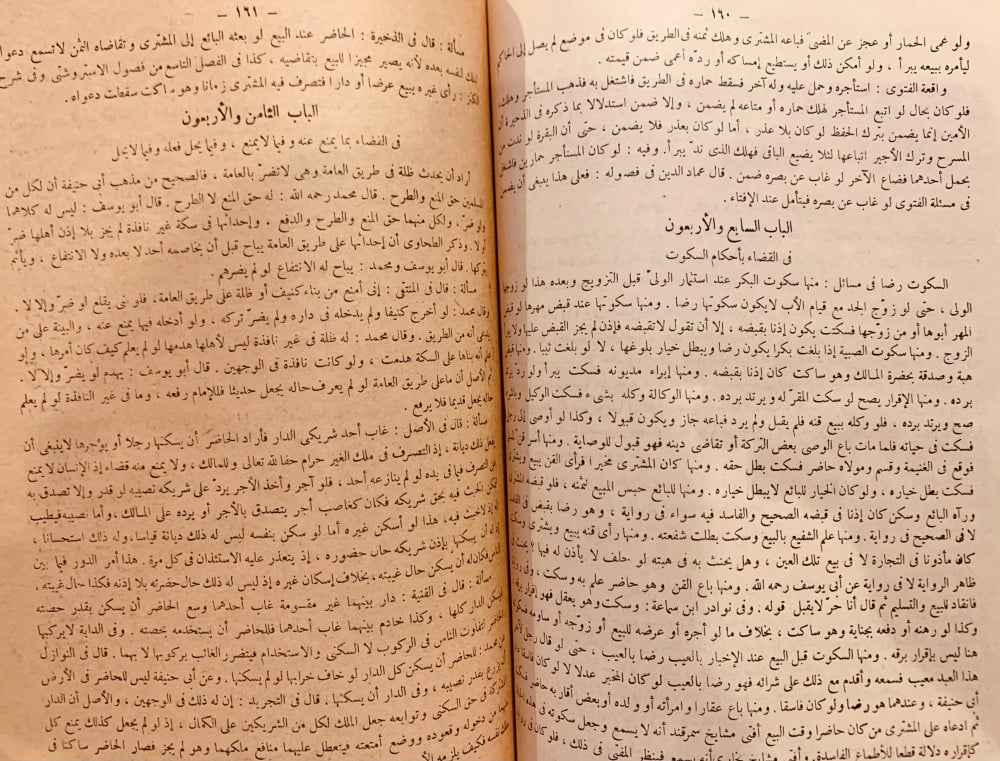 - ١٦٠ -
ولو عمى الحمار أو عجز عن المضىّ فباعه المشترى وهلك ثمنه فى الطريق فلو كان فى موضع لم يصل إلى الحاكم
ليأمره ببيعه يبرأ ، ولو أمكن ذلك أو يستطيع إمساكه أو ردّه أعمى ضمن قيمته .
واقعة الفتوى : استأجره وحمل عليه وله آخر فسقط حماره فى الطريق فاشتغل به فذهب المستأجر وهلك،
فلو كان بحال لو اتبع المستأجر لهلك حماره أو متاعه لم يضمن ، وإلا ضمن استدلالا بما ذكره فى الذخيرة أن
الأمين إنما يضمن بترك الحفظ لو كان بلا عذر ، أما لو كان بعذر فلا يضمن ، حتى أن البقرة لو ندت من
المسرح وترك الأجير اتباعها لئلا يضيع الباقى فهلك الذى ندّ يبرأ . وفيه : لو كان المستأجر حمارين فاشتغل
بحمل أحدهما فضاع الآخر لو غاب عن بصره ضمن . قال عماد الدين فى فصوله : فعلى هذا ينبغى أن يضمن
فى مسئلة الفتوى لو غاب عن بصره فيتأمل عند الإفتاء .
الباب السابع والأربعون
فى القضاء بأحكام السكوت
السكوت رضا فى مسائل : منها سكوت البكر عند استئمار الولىّ قبل التزويج وبعده هذا لو زوجها
الولى ، حتى لو زوج الجد مع قيام الأب لا يكون سكوتها رضا . ومنها سكوتها عند قبض مهرها لو قبض
المهر أبوها أو من زوّجها فسكتت يكون إذنا بقبضه ، إلا أن تقول لا تقبضه فإذن لم يجز القبض عليها ولا يبرأ
الزوج . ومنها سكوت الصبية إذا بلغت بكرا يكون رضا ويبطل خيار بلوغها ، لا لو بلغت ثيبا . ومنها قبض
هبة وصدقة بحضرة المالك وهو ساكت كان إذنا بقبضه . ومنها إبراء مديونه فسكت يبرأ ولو رد يرتد
برده . ومنها الإقرار يصح لو سكت المقرّ له ويرتد برده . ومنها الوكالة وكله بشىء فسكت الوكيل وباشره
صح ويرتد برده ، فلو وكله ببيع قنه فلم يقبل ولم يرد فباعه جاز ويكون قبولا ، وكذا لو أوصى إلى رجل
فسكت فى حياته فلما مات باع الوصى بعض التركة أو تقاضى دينه فهو قبول للوصاية . ومنها أسر قن لمسلم
فوقع فى الغنيمة وقسم ومولاه حاضر فسكت بطل حقه . ومنها كان المشترى مخيرا فرأى القن يبيع ويشترى
فسكت بطل خياره ، ولو كان الخيار للبائع لا يبطل خياره . ومنها للبائع حبس المبيع لثمنه ، فلو قبضه المشترى
ورآه البائع وسكن كان إذنا فى قبضه الصحيح والفاسد فيه سواء فى رواية ، وهو رضا بقبض فى الفاسد
لا فى الصحيح فى رواية . ومنها علم الشفيع بالبيع وسكت بطلت شفعته . ومنها رأى قنه يبيع ويشترى وسكت
كان مأذونا فى التجارة لا فى بيع تلك العين ، وهل يحنث به فى هبته لو حلف لا يأذن له فيها ؟ يحنث فى
ظاهر الرواية لا فى رواية عن أبى يوسف رحمه الله . ومنها باع القن وهو حاضر علم به وسكت ، وفى رواية
فانقاد للبيع والتسليم ثم قال أنا حرّ لا يقبل قوله . وفى نوادر ابن سماعة : وسكت وهو يعقل فهو إقرار برقه
وكذا لو رهنه أو دفعه بجناية وهو ساكت ، بخلاف ما لو أجره أو عرضه للبيع أو زوّجه أو ساومه فسكوته
هنا ليس بإقرار برقه . ومنها السكوت قبل البيع عند الإخبار بالعيب رضا بالعيب ، حتى لو قال رجل
هذا العبد معيب فسمعه وأقدم مع ذلك على شرائه فهو رضا بالعيب لو كان المخبر عدلا لا لو كان فاسقا عند
أبى حنيفة ، وعندهما هو رضا ولو كان فاسقا . ومنها باع عقارا وامرأته أو ولده أو بعض أقاربه حاضر فسكت
ثم ادعاه على المشترى من كان حاضرا وقت البيع أفتى مشايخ سمرقند أنه لا يسمع وجعل سكوته فى هذه
كإقراره دلالة قطعا للأطماع الفاسدة . وأفتى مشايخ بخارى أنه يسمع فينظر المفتى فى ذلك ، فلو كان فى
- ١٦١ -
مسألة : قال فى الذخيرة : الحاضر عند البيع لو بعثه البائع إلى المشترى وتقاضاه الثمن لا تسمع دعواه
لنفسه بعده لأنه يصير مجيزا للبيع بتقاضيه ، كذا فى الفصل التاسع من فصول الاستروشنى وفى شرح
الكنز : رأى غيره يبيع عرضا أو دارا فتصرف فيه المشترى زمانا وهو ساكت سقطت دعواه .
الباب الثامن والأربعون
فى القضاء بما يمنع عنه وفيما لا يمنع ، وفيما يحل فعله وفيما لا يحل
أراد أن يحدث ظلة فى طريق العامة وهى لا تضرّ بالعامة ، فالصحيح من مذهب أبى حنيفة أن لكل من
المسلمين حق المنع والطرح . قال محمد رحمه الله : له حق المنع لا الطرح . قال أبو يوسف : ليس له كلاهما
ولو ضر ، ولكل منهما حق المنع والطرح والدفع ، وإحداثها فى سكة غير نافذة لم يجز بلا إذن أهلها ضرّ
أو لا . وذكر الطحاوى أن إحداثها على طريق العامة يباح قبل أن يخاصمه أحد لا بعده ولا الانتفاع ، ويأثم
بتركها . قال أبو يوسف ومحمد : يباح له الانتفاع لو لم يضرهم .
مسألة : قال فى المنتقى : إنى أمنع من بناء كنيف أو ظلة على طريق العامة، فلو بنى يقلع لو ضرّ وإلا لا .
وقال محمد: لو أخرج كنيفا ولم يدخله فى داره ولم يضرّ تركه . ولو أدخله فيها يمنع عنه ، والبينة على من
يدعى أنه من الطريق . وقال محمد : له ظلة فى غير نافذة ليس لأهلها هدمها لو لم يعلم كيف كان أمرها ، ولو
علم أنه بناها على السكة هدمت ، ولو كانت نافذة فى الوجهين . قال أبو يوسف : يهدم لو يضرّ وإلا لا .
ثم الأصل أن ما على طريق العامة لو لم يعرف حاله يجعل حديثا فللإمام رفعه ، وما فى غير النافذة لو لم يعلم
حاله يجعل قديما فلا يرفع .
مسألة : قال فى الأصل : غاب أحد شريكى الدار فأراد الحاضر أن يسكنها رجلا أو يؤجرها لا ينبغى أن
يفعل ذلك ديانة ، إذ التصرف فى ملك الغير حرام حقا لله تعالى وللمالك ، ولا يمنع منه قضاء إذ الإنسان لا يمنع
عن التصرف فيما فى يده لو لم ينازعه أحد ، فلو آجر وأخذ الأجر يردّ على شريكه نصيبه لو قدر وإلا تصدق به
لتمكن الخبث فيه بحق شريكه فكان كغاصب أجر يتصدق بالأجر أو يرده على المالك، وأما نصيبه فيطيب
له إذ لا خبث فيه، هذا لو أسكن غيره أما لو سكن بنفسه ليس له ذلك ديانة قياسا، وله ذلك استحسانا ،
إذ له أن يسكنها بإذن شريكه حال حضوره ، إذ يتعذر عليه الاستئذان فى كل مرة . هذا أمر الدور فيما بين
الناس فكان له أن يسكن حال غيبته ، بخلاف إسكان غيره إذ ليس له ذلك حال حضرته بلا إذنه فكذا حال غيبته .
مسألة : قال فى القنية : دار بينهما غير مقسومة غاب أحدهما وسع الحاضر أن يسكن بقدر حصته
ويسكن الدار كلها ، وكذا خادم بينهما غاب أحدهما فللحاضر أن يستخدمه بحصته . وفى الدابة لا يركبها
الحاضر لتفاوت الناس فى الركوب لا السكنى والاستخدام فيتضرر الغائب بركوبها لا بهما . قال فى النوازل
عن محمد : للحاضر أن يسكن كل الدار لو خاف خرابها لو لم يسكنها . وعن أبى حنيفة ليس للحاضر فى الأرض
أن يزرع بقدر نصيبه ، وفى الدار أن يسكنها . قال فى التجريد : إن له ذلك فى الوجهين ، والأصل أن الدار
المشتركة فى حق السكنى وتوابعه جعل الملك لكل من الشريكين على الكمال ، إذ لو لم يجعل كذلك يمنع كل
منهما من دخوله وقعوده ووضع أمتعته فيتعطل عليهما منافع ملكهما وهو لم يجز فصار الحاضر ساكنا فى